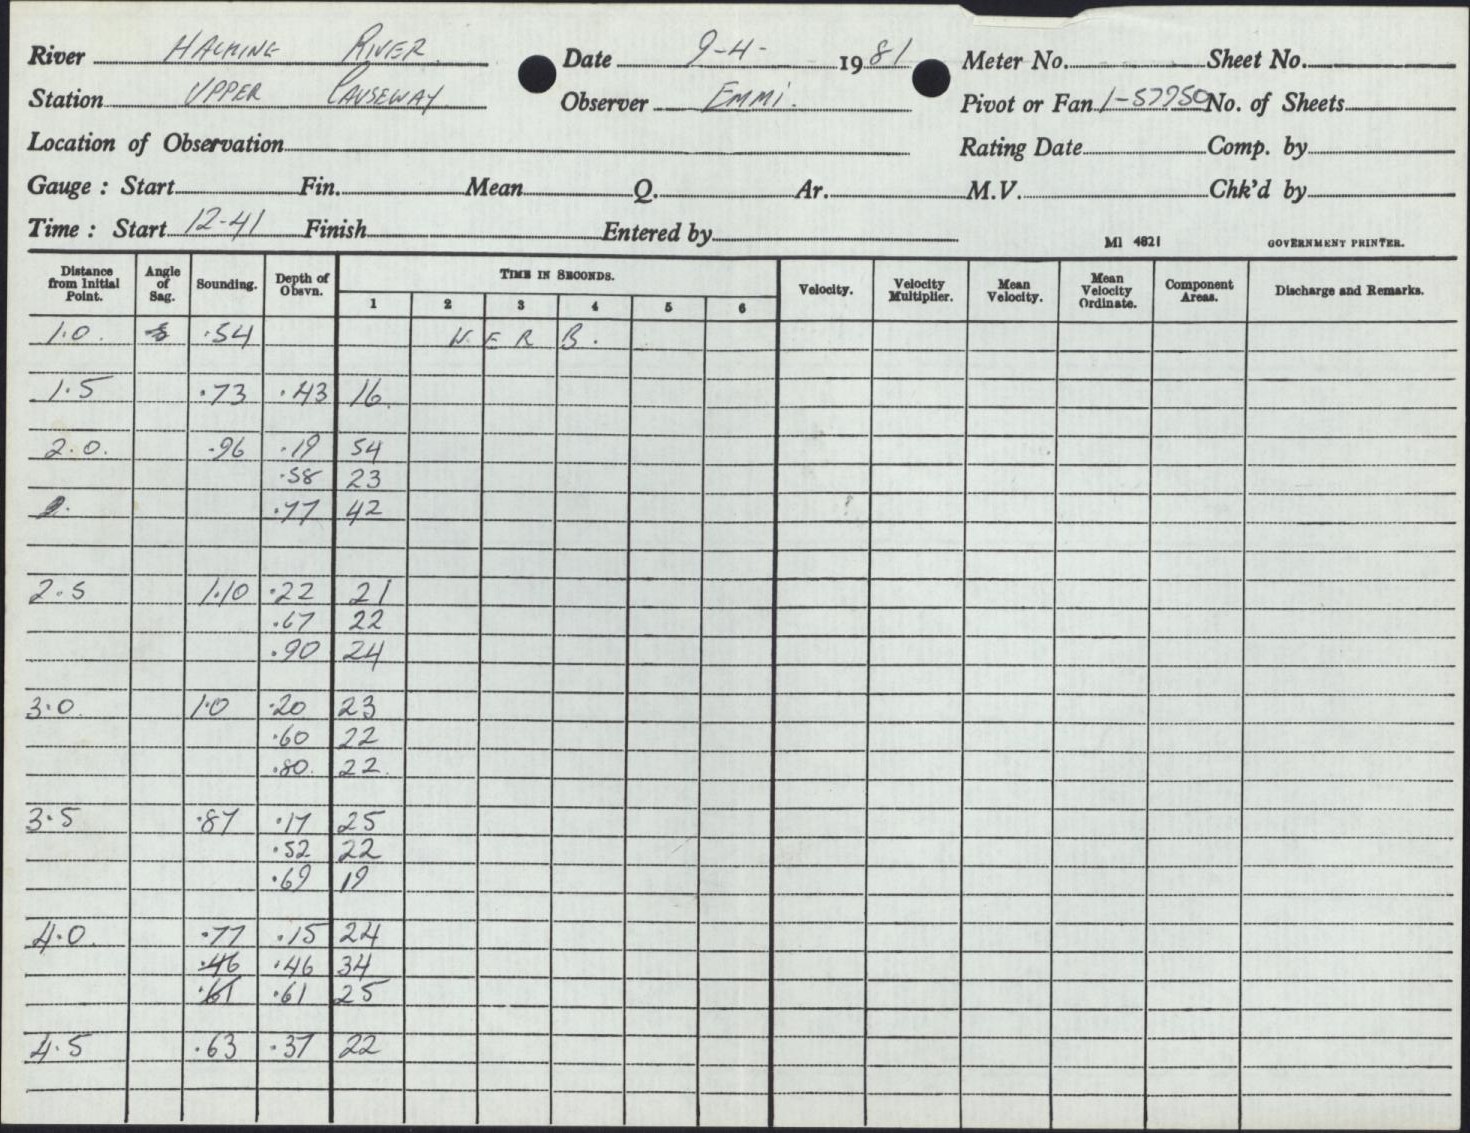 River HACKING RIVER Date 9-4- 1981 Meter No. Sheet No.
Station UPPER CAUSEWAY Observer EMMI. Pivot or Fan 1-57750 No. of Sheets
Location of Observation Rating Date Comp. by
Gauge : Start Fin. Mean Q. Ar. M.V. Chk'd by
Time : Start 12-41 Finish Entered by
MI 4821 GOVERNMENT PRINTER.
Distance from Initial Point. Angle of Sag. Sounding. Depth of Obsvn. TIME IN SECONDS. Velocity. Velocity Multiplier. Mean Velocity. Mean Velocity Ordinate. Component Areas. Discharge and Remarks.
1 2 3 4 5 6
1.0 .54 W. E R B.
1.5 .73 .43 16
2.0. .96 .19 54
.58 23
.77 42
2.5 1.10 .22 21
.67 22
.90 24
3.0 1.0 .20 23
.60 22
.80. 22.
3.5 .87 .17 25
.52 22
.69 19
4.0. .77 .15 24
.46 .46 34
.61 .61 25
4.5 .63 .37 22